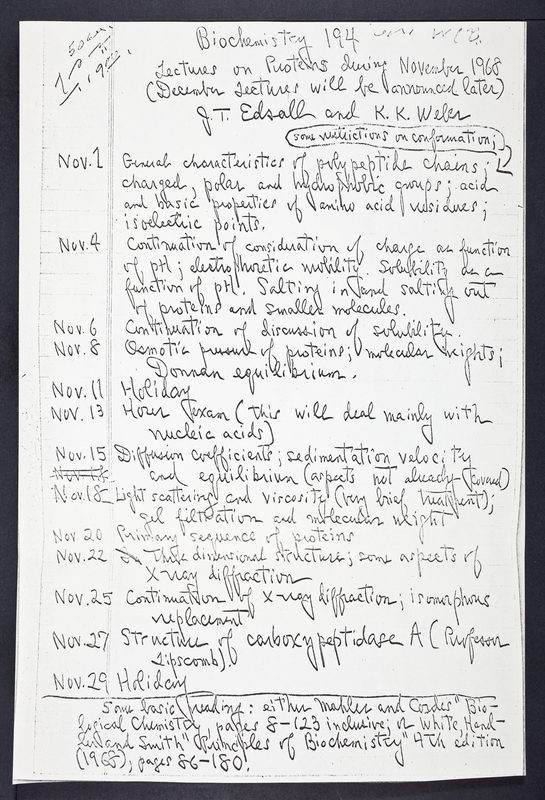 50 cm
Biochemistry 194
Lectures on Proteins during November 1968
(December Lectures will be announced later)
J.T. Edsall and K.K. Weber
some restrictions on conformation;
Nov. 1 General characteristics of polypeptide chains;
charged, polar and hydrophobic groups; acid
and basic properties of amino acid residues;
isoelectric points.
Nov. 4 Continuation of consideration of charge as function
of pH; electrophoretic mobility. Solubility as a
function of pH. Salting in and salting out
of proteins and smaller molecules.
Nov. 6 Continuation of discussion of solubility.
Nov. 8 Osmotic pressure of proteins; molecular weights;
Donnan equilibrium.
Nov. 11 Holiday
Nov. 13 Hour exam (this will deal mainly with
nucleic acids)
Nov. 15 Diffusion coefficients; sedimentation velocity
and equilibrium (aspects not already covered)
Nov. 18 Light scattering and viscosity (very brief treatment);
gel filtration and molecular weight
Nov. 20 Primary sequence of proteins
Nov. 22 Three dimensional structure; some aspects of
X-ray diffraction
Nov. 25 Continuation of X-ray diffraction; isomorphous
replacement
Nov. 27 Structure of carboxypeptidase A (Professor
Lipscomb)
Nov. 29 Holiday
Some basic reading: either Mahler and Cordes "Bio-
logical Chemistry, pages 8-123 inclusive; or White, Hand-
ler and Smith "Principles of Biochemistry" 4th edition
(1968), pages 86-180.